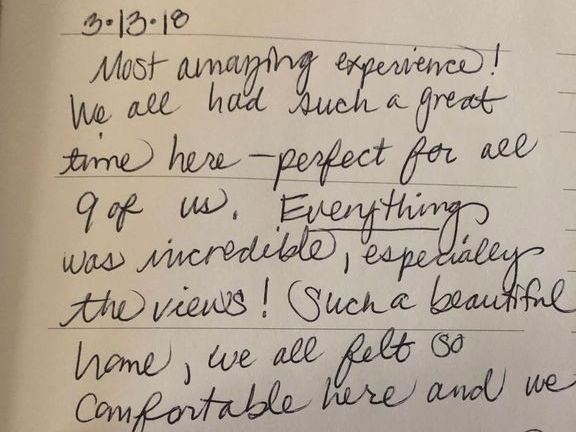 3.13.18
Most amazing experience!
We all had such a great
time here - perfect for all
9 of us. Everything
was incredible, especially
the views! Such a beautiful
home, we all felt so
comfortable here and we